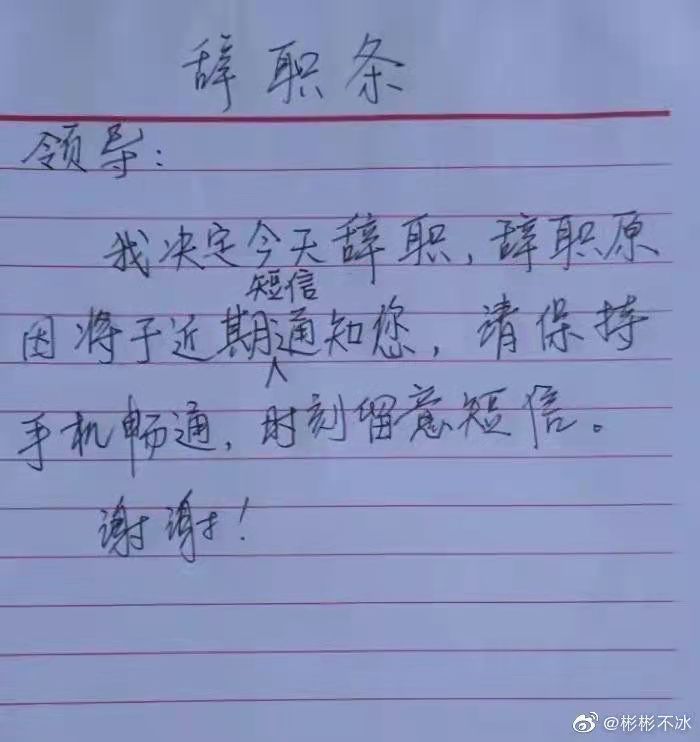 辞职条
领导:
我决定今天辞职,辞职原
因将于近期短信通知您,请保持
手机畅通,时刻留意短信。
谢谢!
@彬彬不冰